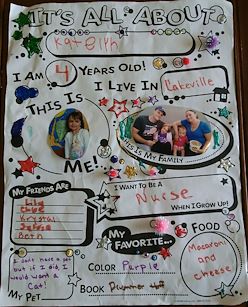 IT'S ALL ABOUT
Katelyn
I AM 4 YEARS OLD!
I LIVE IN Lakeville
THIS IS
ME!
THIS IS MY FAMILY
MY FRIENDS ARE
Lily
Chloe
Krystal
Sylvia
Beth
I WANT TO BE A
Nurse
WHEN I GROW UP!
MY FAVORITE...
FOOD
Macaroni
and
cheese
I don't have a pet
but if I did I
would want a
Cat!
MY PET
COLOR Purple
BOOK